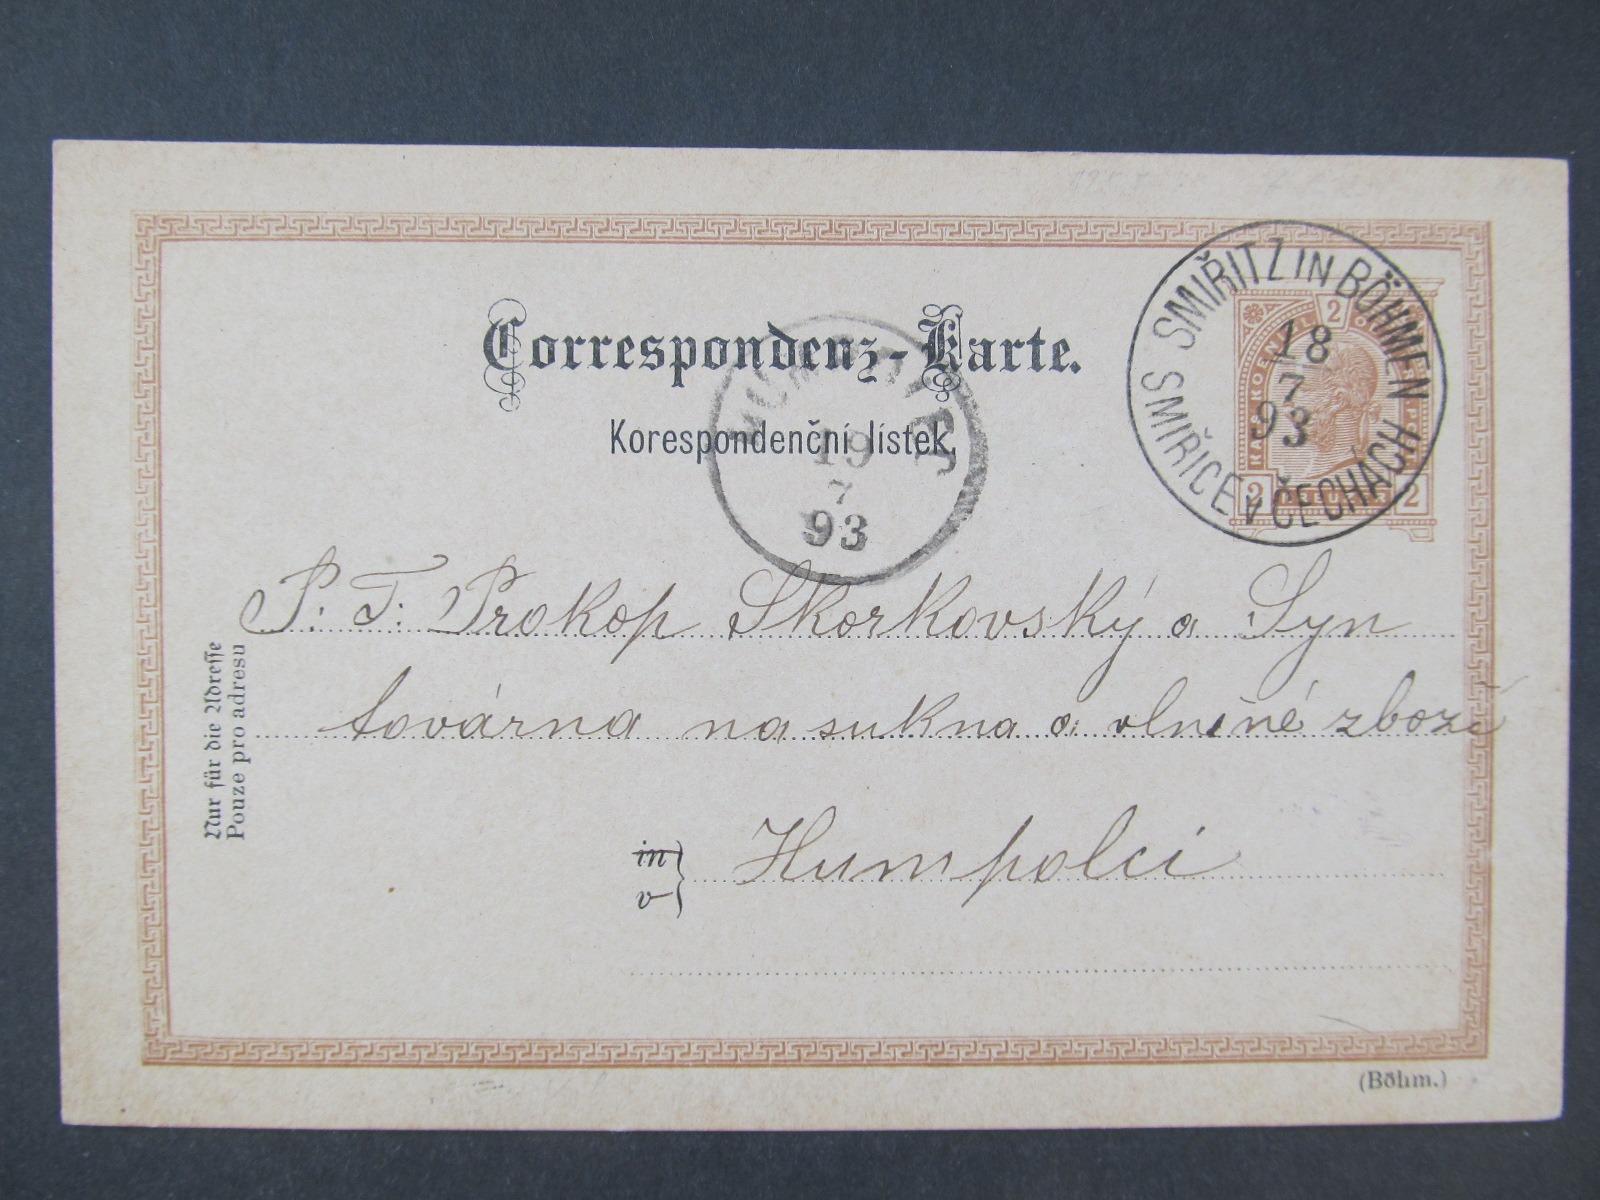 Correspondenz-Karte.
Korespondenční lístek.
SMIŘITZ IN BÖHMEN
SMIŘICE v ČECHÁCH
18
7
93
2
2 2
19
7
93
P. T. Prokop Skorkovský a Syn
továrna na sukna a vlněné zboží
in
v
Humpolci
Nur für die Adresse
Pouze pro adresu
(Böhm.)